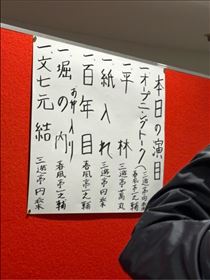 本日の演目
一.オープニングトーク(三遊亭円楽 春風亭一之輔)
一.平林 三遊亭萬丸
一.紙入れ 三遊亭円楽
一.百年目 春風亭一之輔
お仲入り
一.堀の内 春風亭一之輔
一.文七元結 三遊亭円楽